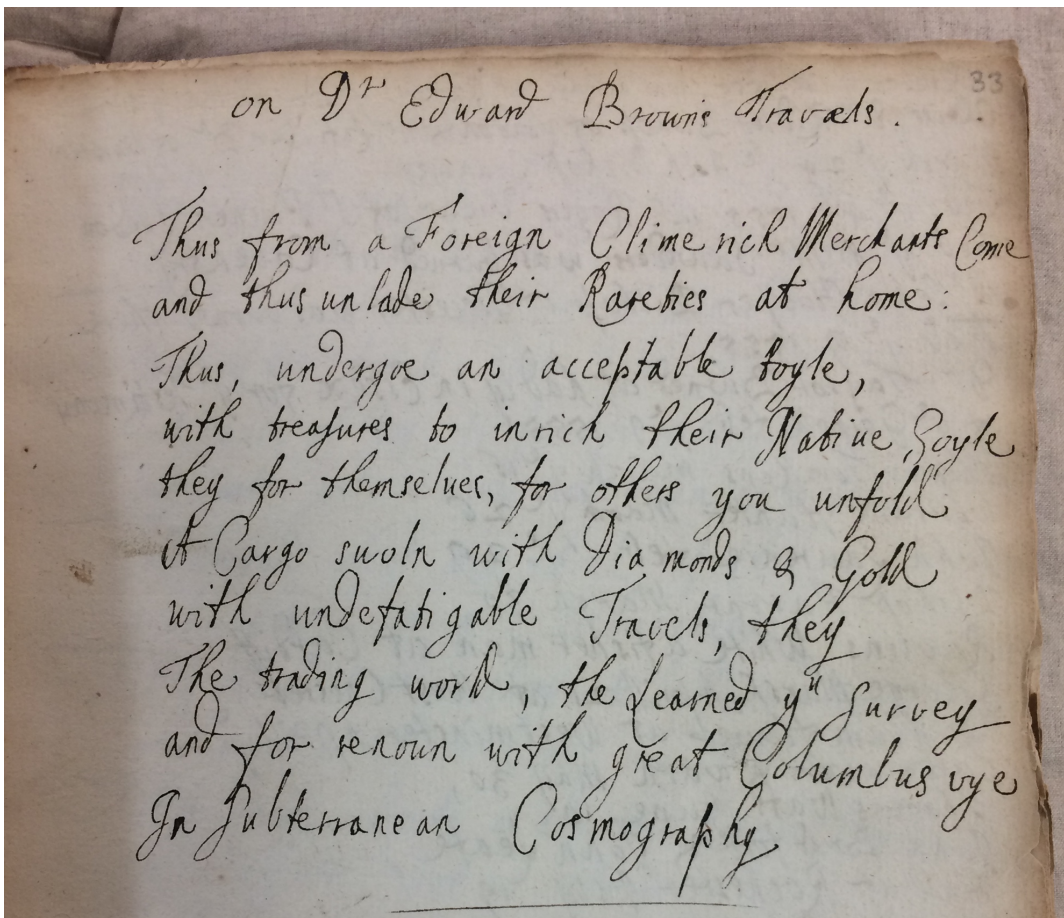 33
on Dr Edward Browns Travels.
Thus from a Foreign Clime rich Merchants Come
and thus unlade their Rareties at home:
Thus, undergoe an acceptable toyle,
with treasures to inrich their Native Soyle
they for themselves, for others you unfold
A Cargo swoln with Diamonds & Gold
with undefatigable Travels, they
The trading world, the Learned yu Survey
and for renoun with great Columbus vye
In Subterranean Cosmography